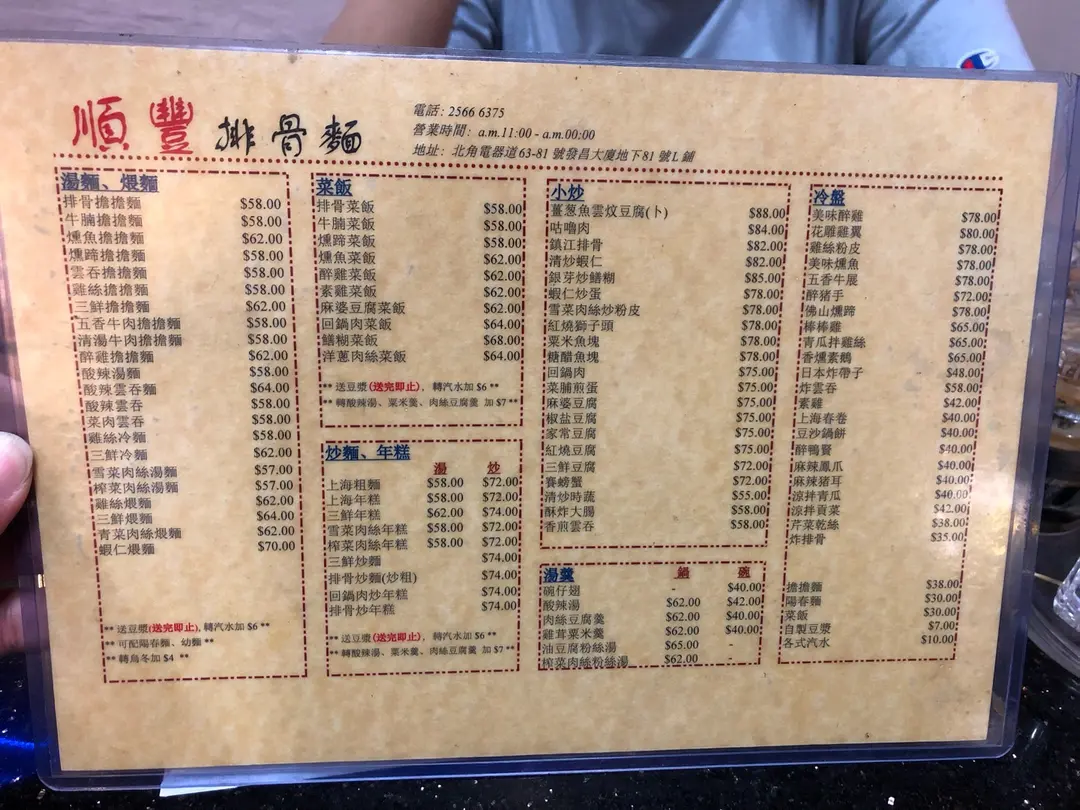 順豐排骨麵
電話: 2566 6375
營業時間: a.m.11:00 - a.m.00:00
地址: 北角電器道63-81 號發昌大廈地下81 號L 鋪
湯麵、煨麵
排骨擔擔麵 $58.00
牛腩擔擔麵 $58.00
燻魚擔擔麵 $62.00
燻蹄擔擔麵 $58.00
雲吞擔擔麵 $58.00
雞絲擔擔麵 $58.00
三鮮擔擔麵 $62.00
五香牛肉擔擔麵 $58.00
清湯牛肉擔擔麵 $58.00
醉雞擔擔麵 $62.00
酸辣湯麵 $58.00
酸辣雲吞麵 $64.00
酸辣雲吞 $58.00
菜肉雲吞 $58.00
雞絲冷麵 $58.00
三鮮冷麵 $62.00
雪菜肉絲湯麵 $57.00
榨菜肉絲湯麵 $57.00
雞絲煨麵 $62.00
三鮮煨麵 $64.00
青菜肉絲煨麵 $62.00
蝦仁煨麵 $70.00
** 送豆漿(送完即止), 轉汽水加 $6 **
** 可配陽春麵、幼麵 **
** 轉烏冬加 $4 **
菜飯
排骨菜飯 $58.00
牛腩菜飯 $58.00
燻蹄菜飯 $58.00
燻魚菜飯 $62.00
醉雞菜飯 $62.00
素雞菜飯 $62.00
麻婆豆腐菜飯 $62.00
回鍋肉菜飯 $64.00
鱔糊菜飯 $68.00
洋蔥肉絲菜飯 $64.00
** 送豆漿(送完即止), 轉汽水加 $6 **
** 轉酸辣湯、粟米羹、肉絲豆腐羹 加 $7 **
炒麵、年糕
湯 炒
上海粗麵 $58.00 $72.00
上海年糕 $58.00 $72.00
三鮮年糕 $62.00 $74.00
雪菜肉絲年糕 $58.00 $72.00
榨菜肉絲年糕 $58.00 $72.00
三鮮炒麵 $74.00
排骨炒麵(炒粗) $74.00
回鍋肉炒年糕 $74.00
排骨炒年糕 $74.00
** 送豆漿(送完即止), 轉汽水加 $6 **
** 轉酸辣湯、粟米羹、肉絲豆腐羹 加 $7 **
小炒
薑葱魚雲炆豆腐(卜) $88.00
咕嚕肉 $84.00
鎮江排骨 $82.00
清炒蝦仁 $82.00
銀芽炒鱔糊 $85.00
蝦仁炒蛋 $78.00
雪菜肉絲炒粉皮 $78.00
紅燒獅子頭 $78.00
粟米魚塊 $78.00
糖醋魚塊 $78.00
回鍋肉 $75.00
菜脯煎蛋 $75.00
麻婆豆腐 $75.00
椒鹽豆腐 $75.00
家常豆腐 $75.00
紅燒豆腐 $75.00
三鮮豆腐 $72.00
賽螃蟹 $72.00
清炒時蔬 $55.00
酥炸大腸 $58.00
香煎雲吞 $58.00
湯羹 鍋 碗
碗仔翅 - $40.00
酸辣湯 $62.00 $42.00
肉絲豆腐羹 $62.00 $40.00
雞茸粟米羹 $62.00 $40.00
油豆腐粉絲湯 $65.00 -
榨菜肉絲粉絲湯 $62.00 -
冷盤
美味醉雞 $78.00
花雕雞翼 $80.00
雞絲粉皮 $78.00
美味燻魚 $78.00
五香牛展 $78.00
醉猪手 $72.00
佛山燻蹄 $78.00
棒棒雞 $65.00
青瓜拌雞絲 $65.00
香燻素鵝 $65.00
日本炸帶子 $48.00
炸雲吞 $58.00
素雞 $42.00
上海春卷 $40.00
豆沙鍋餅 $40.00
醉鴨腎 $40.00
麻辣鳳爪 $40.00
麻辣猪耳 $40.00
涼拌青瓜 $40.00
涼拌貢菜 $42.00
芹菜乾絲 $38.00
炸排骨 $35.00
擔擔麵 $38.00
陽春麵 $30.00
菜飯 $30.00
自製豆漿 $7.00
各式汽水 $10.00